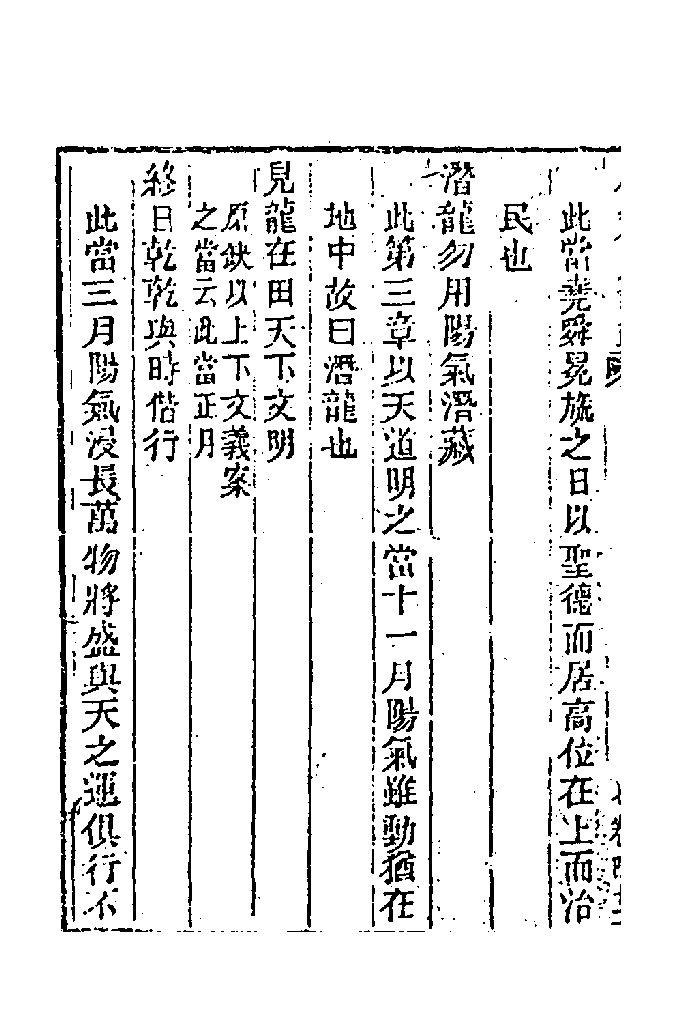 此當堯舜冕旒之日以聖德而居高位在上而治
民也
潛龍勿用陽氣潛藏
此第三章以天道明之當十一月陽氣雖動猶在
地中故曰潛龍也
見龍在田天下文明
原缺以上下文義案
之當云此當正月
終日乾乾與時偕行
此當三月陽氣浸長萬物將盛與天之運俱行不